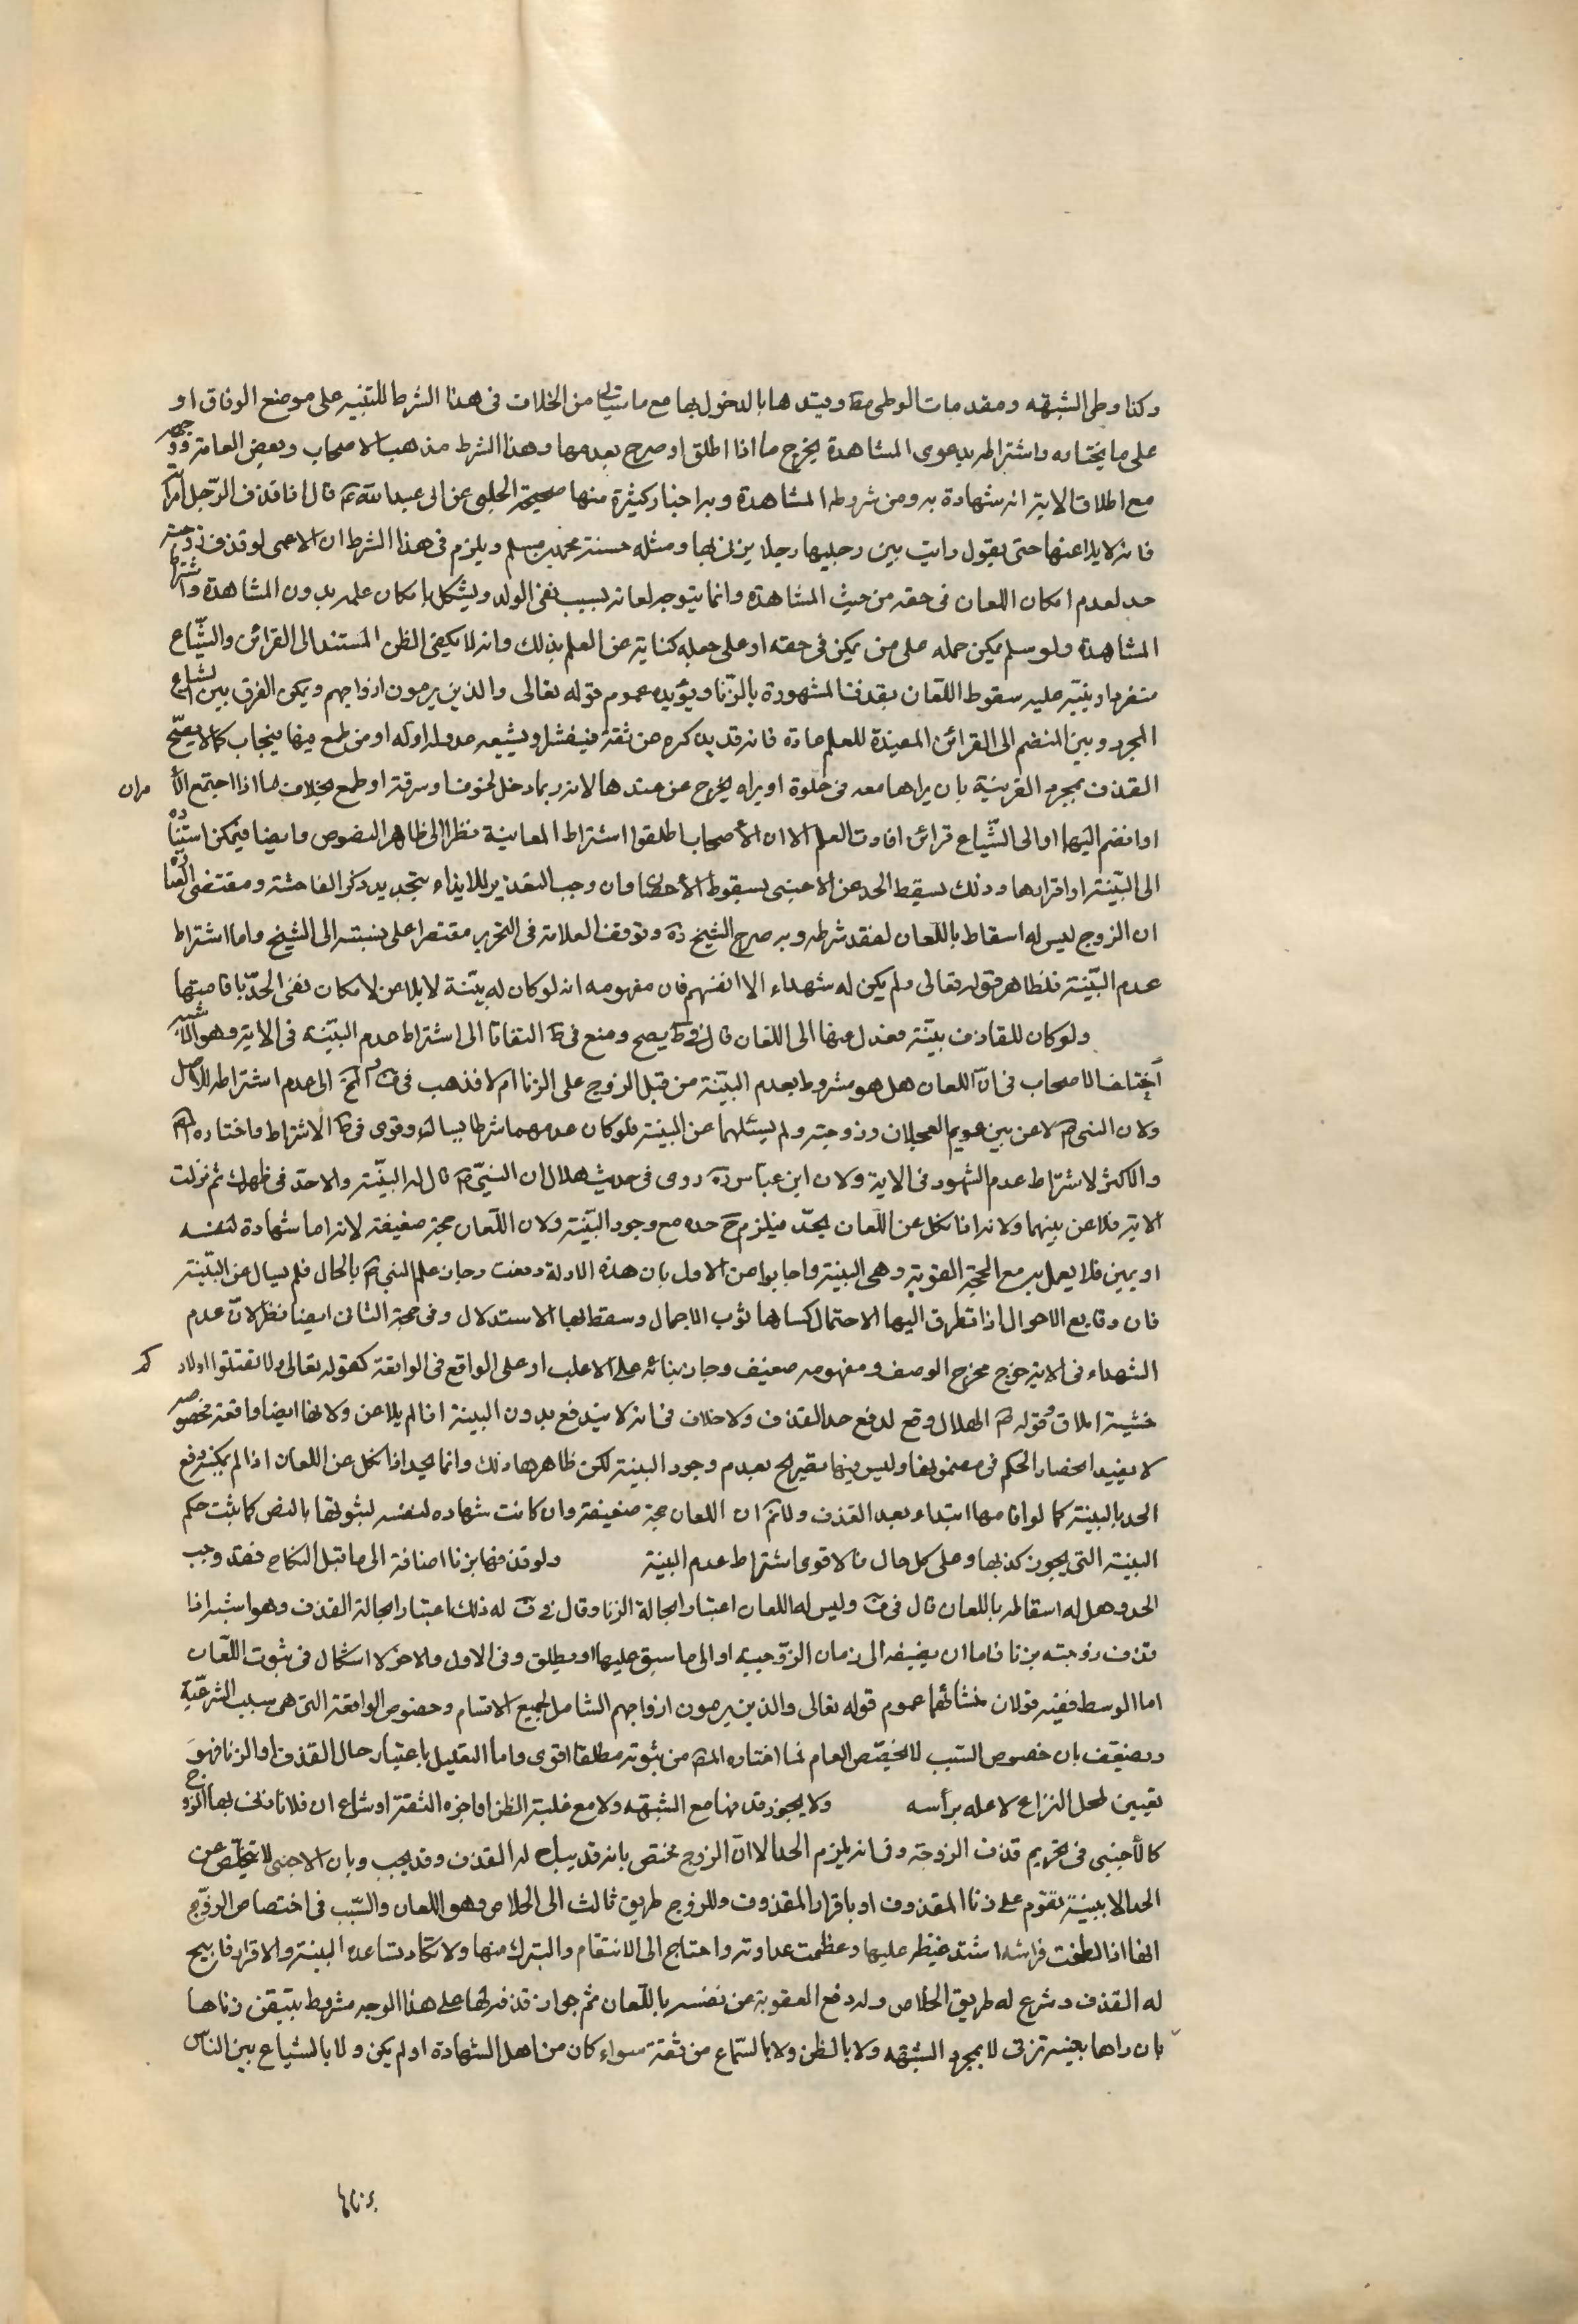 وكذا وطى الشبهه ومقدمات الوطى مط وقيدها بالدخول بها مع ما سياتى من الخلاف فى هذا الشرط للتنبيه على موضع الوفاق او
على ما يختاره واشتراطه بدعوى المشاهدة يخرج ما اذا اطلق او صرح بعدمها وهذا الشرط مذهب الاصحاب وبعض العامة ووجهه
مع اطلاق الاية انه شهادة به ومن شروطه المشاهدة وبه اخبار كثيرة منها صحيحة الحلبى عن ابى عبدالله ع قال اذا قذف الرّجل امراته
فانه لا يلاعنها حتى يقول رايت بين رجليها رجلا يزنى بها ومثله حسنة محمد بن مسلم ويلزم فى هذا الشرط ان الاعمى لو قذف زوجته
حد لعدم امكان اللعان فى حقه من حيث المشاهدة وانما يتوجه لعانه بسبب نفى الولد ويشكل بامكان علمه بدون المشاهدة واشتراط
المشاهدة ولو سلم يمكن حمله على من يمكن فى حقه او على جعله كناية عن العلم بذلك وانه لا يكفى الظن المستند الى القرائن والشّياع
متفردا وينبّه عليه سقوط اللّعان بقذف المشهورة بالزّنا ويؤيده عموم قوله تعالى والذين يرمون ازواجهم ويمكن الفرق بين الشياع
المجرد وبين المنضم الى القرائن المفيدة للعلم عادة فانه قد يذكره من ثقة فينتشر ويشيعه عدو لها او له او من طمع فيها فيخاب كما لا يصحّ
القذف بمجرد القرينة بان يراها معه فى خلوة او يراه يخرج من عندها لانه ربما دخل لخوف او سرقة او طمع بخلاف ما اذا اجتمع الأ مران
او انضم اليهما او الى الشّياع قرائن افادت العلم الا ان الأصحاب اطلقوا اشتراط المعاينة نظرا الى ظاهر النصوص وايضا فيمكن استناده
الى البيّنة او اقرارها وذلك يسقط الحد عن الاجنبى بسقوط الأحصان وان وجب التعذير للايذاء بتجديد ذكر الفاحشة ومقتضى العبارة
ان الزوج ليس له اسقاطه باللّعان لفقد شرطه وبه صرح الشيخ ره وتوقف العلامة فى التحرير مقتصرا على نسبته الى الشيخ واما اشتراط
عدم البيّنة فلظاهر قوله تعالى ولم يكن له شهداء الا انفسهم فان مفهومه انه لو كان له بيّنة لا يلاعن لامكان نفى الحدّ باقامتها
ولو كان للقاذف بيّنة فعدل عنها الى اللعان قال فى ف يصح ومنع فى ط التفاتا الى اشتراط عدم البيّنة فى الاية وهو الاشبه
اختلف الاصحاب فى انّ اللعان هل هو مشروط بعدم البيّنة من قبل الزوج على الزنا ام لا فذهب فى ف والمخ الى عدم اشتراطه للاصل
ولان النبى ص لاعن بين عويمر العجلانى وزوجته ولم يسئلهما عن البينة فلو كان عدمهما شرطا لسال عنه وقوى فى ط الاشتراط واختاره المص
والاكثر لاشتراط عدم الشهود فى الاية ولان ابن عباس ره روى فى حديث هلال ان النبىّ ص قال له البيّنة والا حدّ فى ظهرك ثم نزلت
الاية فلاعن بينهما ولانه اذا نكل عن اللّعان يحدّ فيلزم ح حده مع وجود البيّنة ولان اللّعان حجة ضعيفة لانه اما شهادة لنفسه
او يمين فلا يعمل به مع الحجة القوية وهى البينة واجابوا عن الاول بان هذه الادلة دفعت وجاز علم النبى ص بالحال فلم يسال عن البيّنة
فان وقايع الاحوال اذا تطرق اليها الاحتمال كساها ثوب الاجمال وسقط بها الاستدلال وفى حجة الثانى ايضا نظر لانّ عدم
الشهداء فى الاية خرج مخرج الوصف ومفهومه ضعيف وجاز بنائه على الاغلب او على الواقع فى الواقعة كقوله تعالى ولا تقتلوا اولاد كم
خشية املاق وقوله ص الهلال وقع لدفع حد القذف ولا خلاف فى انه لا يندفع بدون البينة اذا لم يلاعن ولانها ايضا واقعة مخصوصه
لا يفيد انحصار الحكم فى مضمونها وليس فيها تصريح بعدم وجود البينة لكن ظاهرها ذلك وانما يحد اذا نكل عن اللعان اذا لم يمكنه دفع
الحد بالبينة كما لو اقامها ابتداء بعد القذف ولا نم ان اللعان حجة ضعيفة وان كانت شهاده لنفسه لثبوتها بالنص كما يثبت حكم
البينة التى يجوز كذبها وعلى كل حال فالاقوى اشتراط عدم البينة ولو قذفها بزنا اضافة الى ما قبل النكاح فقد وجب
الحد وهل له اسقاطه باللعان قال فى ف وليس له اللعان اعتبارا بحالة الزنا وقال فى ط له ذلك اعتبارا بحالة القذف وهو اشبه اذا
قذف زوجته بزنا فاما ان يضيفه الى زمان الزّوجية او الى ما سبق عليها او يطلق وفى الاول والاخر لا اشكال فى ثبوت اللّعان
اما الوسط ففيه قولان منشائهما عموم قوله تعالى والذين يرمون ازواجهم الشامل لجميع الاقسام وخصوص الواقعة التى هى سبب الشرعيّة
ويضعّف بان خصوص السّبب لا يخصّص العام فما اختاره المص من ثبوته مطلقا اقوى واما التعليل باعتبار حال القذف او الزنا فهو
تعيين لمحل النزاع لا علة برأسه ولا يجوز قذفها مع الشبهه ولا مع غلبة الظن اذا خبره الثقة او شاع ان فلانا زنى بها الزوج
كالأجنبى فى تحريم قذف الزوجة وفى انه يلزم الحد الا انّ الزوج مختص بانه قد يباح له القذف وقد يجب وبان الاجنبى لا يتخلّص عن
الحد الا ببينة تقوم على زنا المقذوف او باقرار المقذوف وللزوج طريق ثالث الى الخلاص وهو اللعان والسّبب فى اختصاص الزوّج
انها اذا لطخت فراشه اشتد غيظه عليها وعظمت عداوته واحتاج الى الانتقام والتبرك منها ولا تكاد تساعده البينة والاقرار فابيح
له القذف وشرع له طريق الخلاص ولدفع العقوبة عن نفسه باللّعان ثم جواز قذفه لها على هذا الوجه مشروط بتيقن زناها
بان راها بعينه تزنى لا بمجرد الشبهه ولا بالظن ولا بالسّماع من ثقة سواء كان من اهل الشهادة او لم يكن ولا بالشياع بين الناس